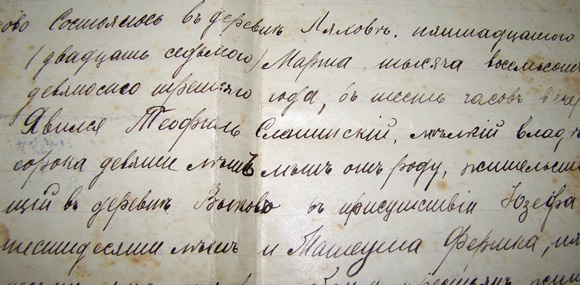 ово Состоялось въ деревнѣ Ляховѣ пятнадцатого
(двадцать седьмого) Марта тысяча восемьсотъ
девяносто третьяго года, въ шесть часовъ вечер
Явился Теофиль Слашинскій, мѣлкій влад
сорока девяти лѣтъ отъ роду, жительств
щій въ деревнѣ въ присутствіи Юзефа
шестидесяти лѣтъ и Матеуша